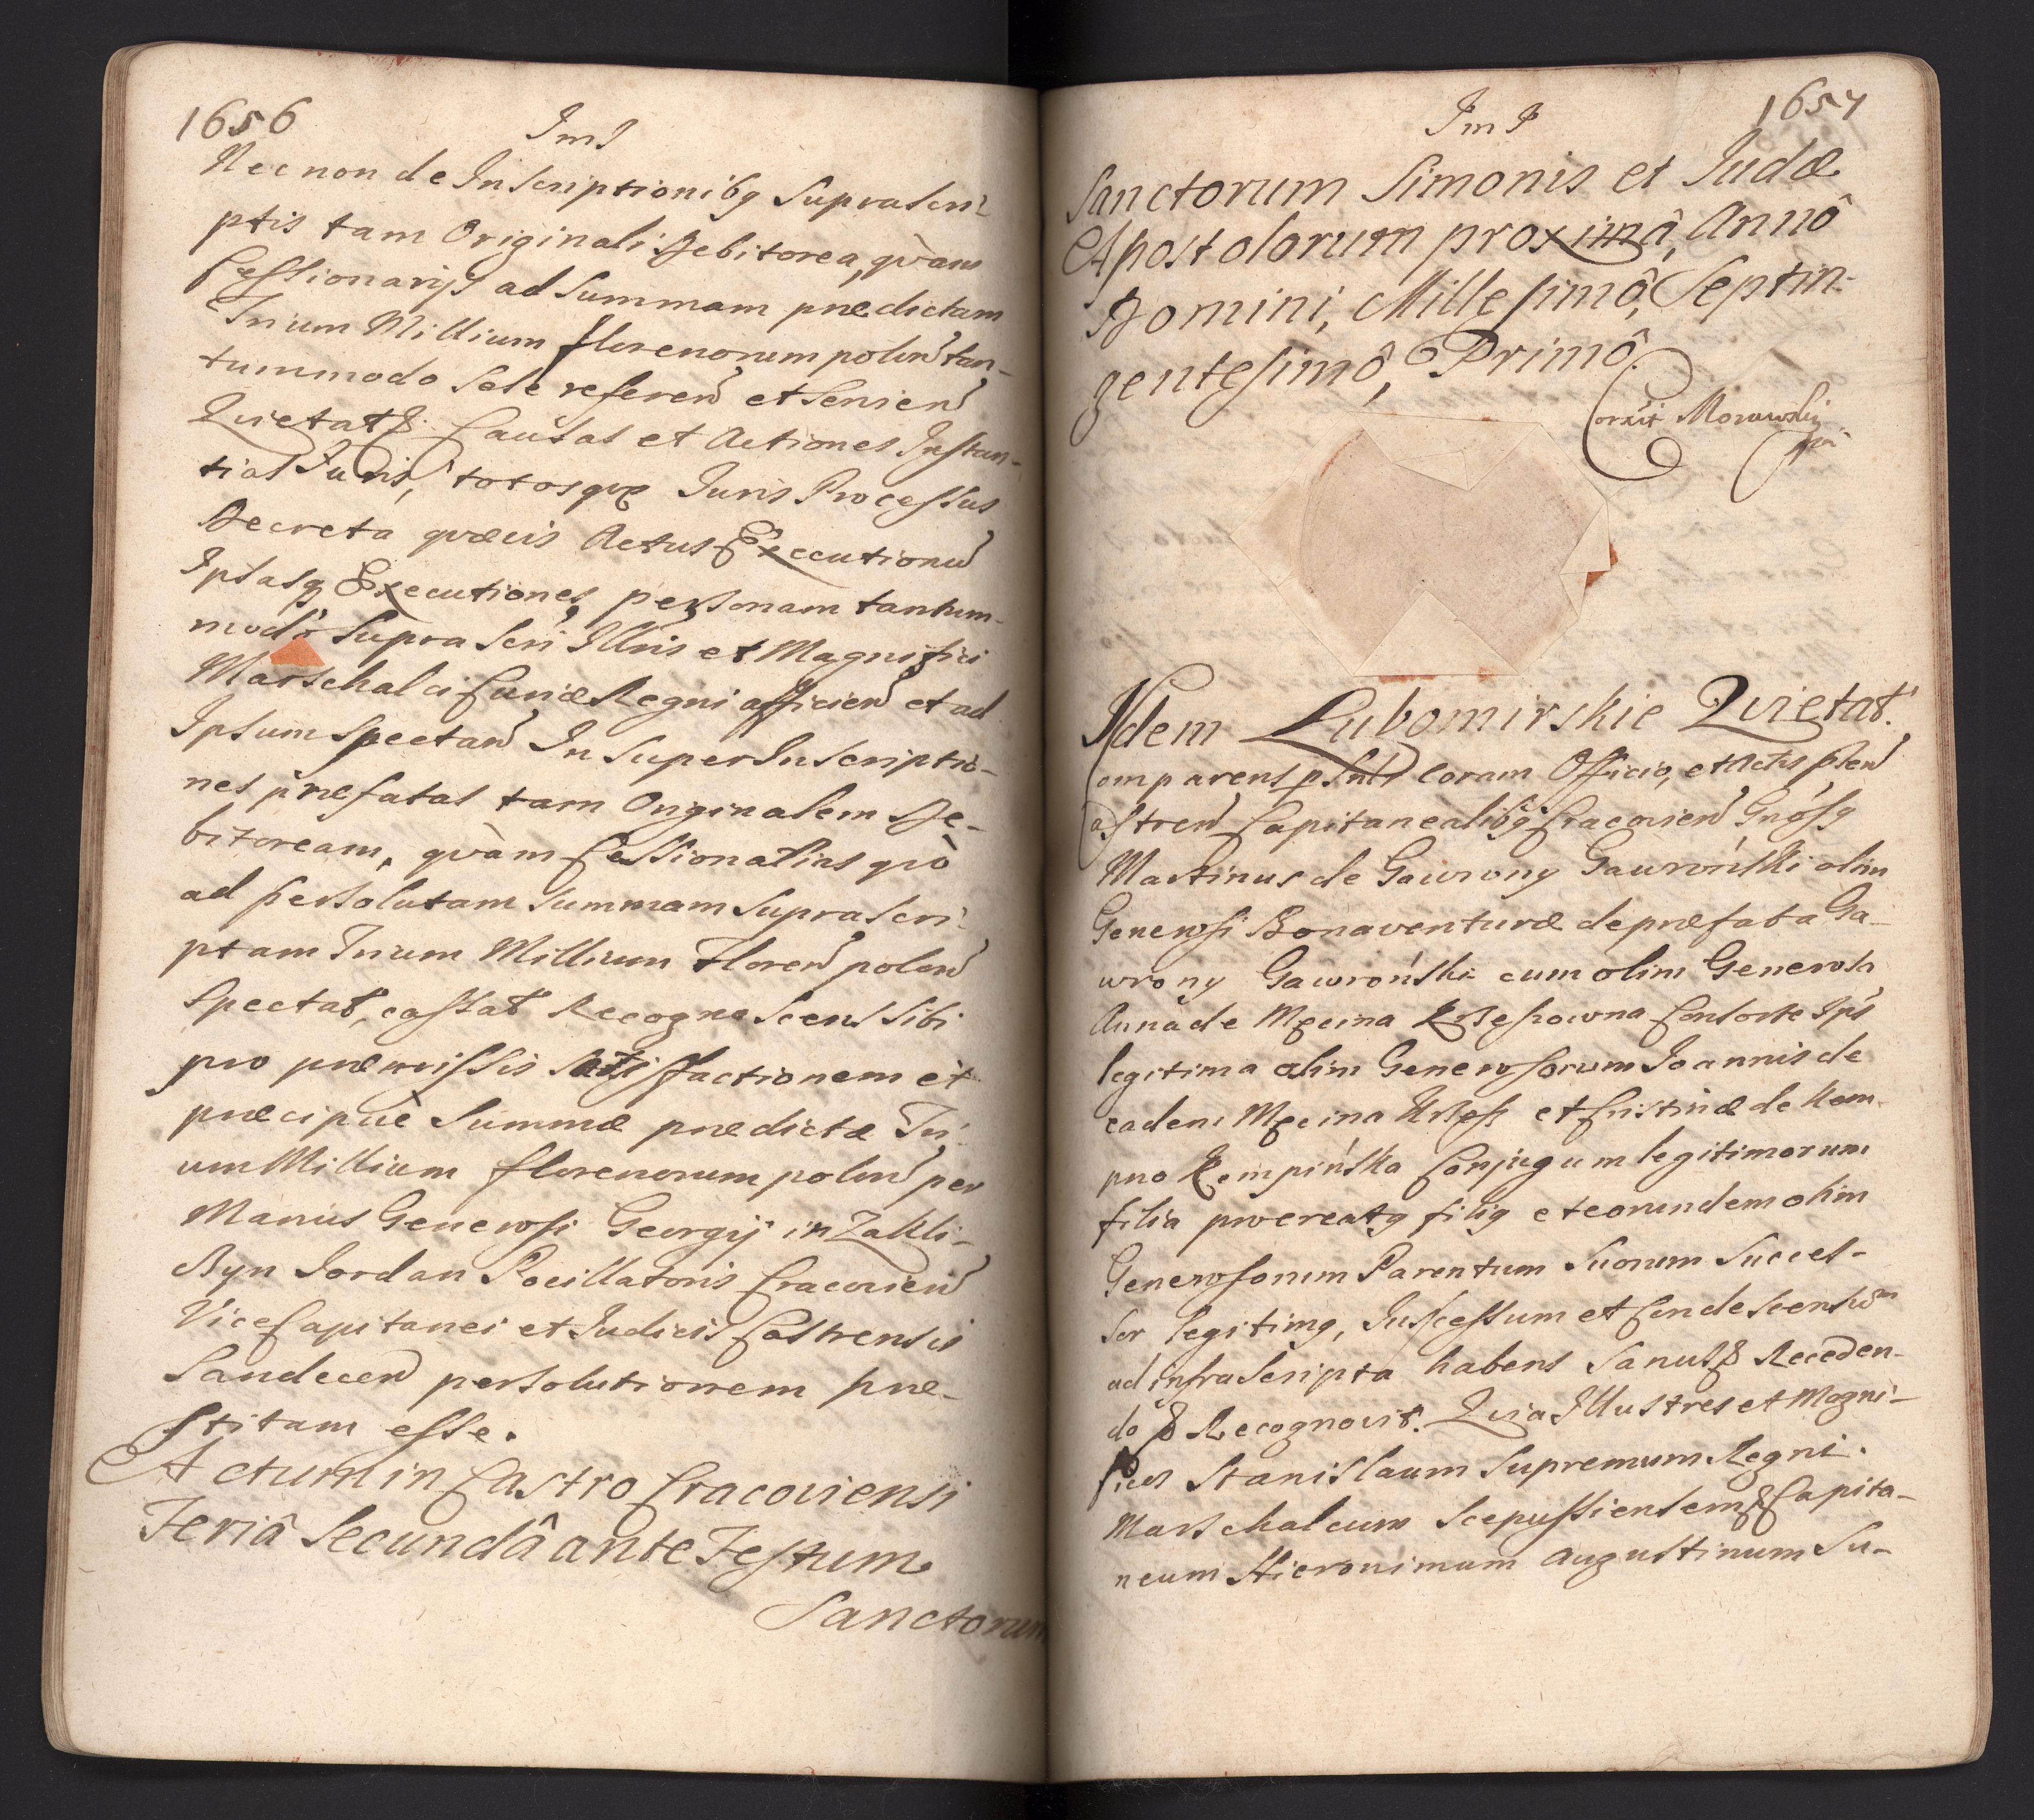 1656
ImJ
Necnon de Inscriptionibq Suprascri-
ptis tam Originali Debitorea, qvàm
Cessionarijs ad Summam prædictam
Trium Millium florenorum polon tan-
tummodo sese referen et Servien
Qvietat & Causas et Actiones Instan-
tias Juris, totosqve Juris Processus
Decreta qvævis Actus Executionu
Ipsasq Executiones, personam tantum-
modo Supra Scri Illris et Magnifici
Marschalci Curiæ Regni afficien et ad
Ipsum Spectan In Super Inscriptio-
nes præfatas tam Originalem De-
bitoream, qvàm Cessionarias qvò
ad persolutam Summam Suprascri-
ptam Trium Millium Floren polon
Spectat, cassat Recognoscens Sibi
pro præmissis Satisfactionem et
præcipuè Summæ prædictæ Tri-
um Millium florenorum polon per
Manus Generosi Georgij in Zakli-
czyn Jordan Pocillatoris Cracovien
Vice Capitanei et Judicis Castrensis
Sandecen persolutionem præ-
stitam esse.
Actum in Castro Cracoviensi
Feriâ Secundâ ante Festum
Sanctorum
1657
ImJ
Sanctorum Simonis et Judæ
Apostolorum proximâ, Annô
Domini, Millesimô, Septin-
gentesimô, Primô.
Corrxit Morawski
mpa
Idem Lubomirskie Qvietat.
Comparens psnlr Coram Officio, et Actis pben
Castren Capitanealibq Cracovien Gnosq
Martinus de Gawrony Gawroński olim
Generosi Bonaventuræ de præfata Ga-
wrony Gawroński cum olim Generosa
Anna de Męcina Krzeszowna Consorte Ips
legitima olim Generosorum Joannis de
eadem Męcina Krzesz et Cristinæ de Kem-
pno Kempińska Conjugum legitimorum
filia procreatq filiq et eorundem olim
Generosorum Parentum Suorum Succes-
sor legitimq, Inscessum et Condescensum
ad infrascripta habens Sanus & Receden-
do & Recognovit. Qvia Illustres et Magni-
ficos Stanislaum Supremum Regni
Marschalcum Scepussiensem & Capita-
neum Hieronimum Augustinum Su-